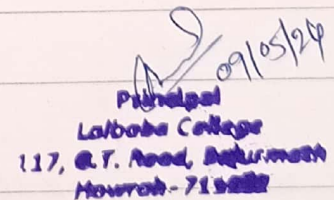 09/05/24
Principal
Lalbaba College
117, G.T. Road, Belurmath
Howrah-